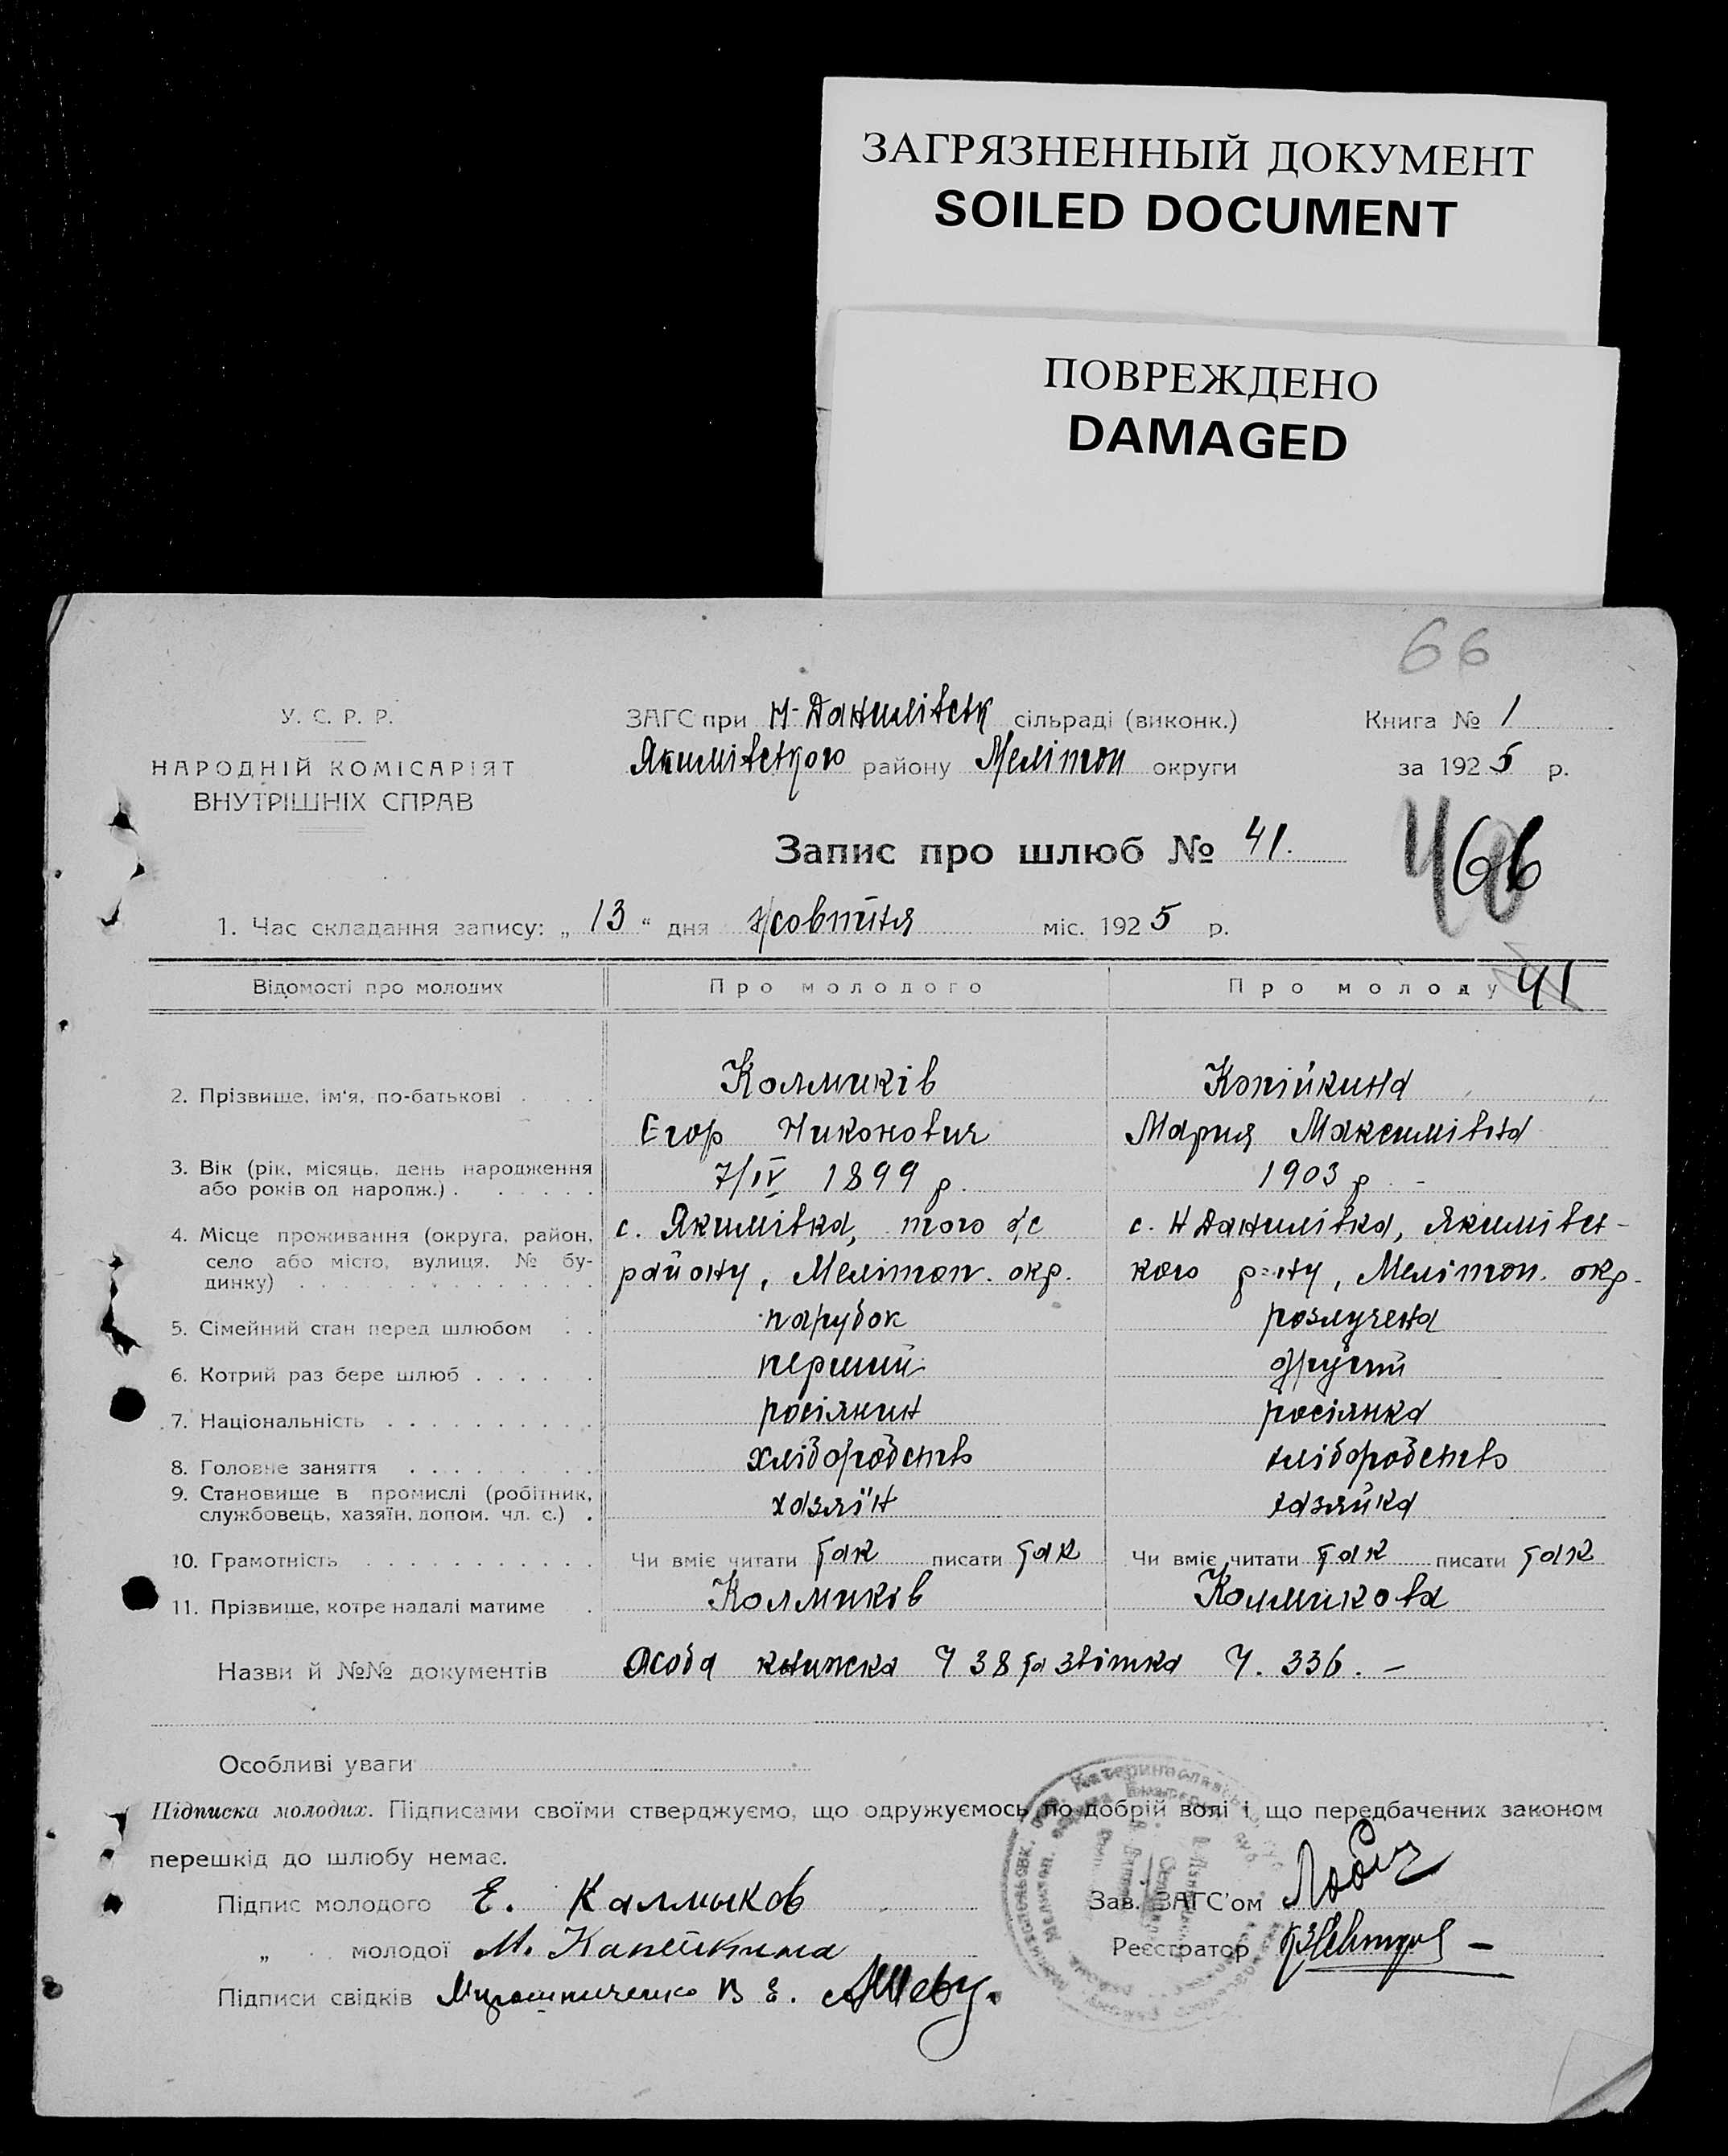 ЗАГРЯЗНЕННЫЙ ДОКУМЕНТ
SOILED DOCUMENT
ПОВРЕЖДЕНО
DAMAGED
66
У. С. Р. Р.
НАРОДНІЙ КОМІСАРІЯТ
ВНУТРІШНІХ СПРАВ
ЗАГС при Н-Данилівськ сільраді (виконк.)
Якимівського району Мелітоп округи
Книга № 1
за 1925 р.
Запис про шлюб № 41.
66
1. Час складання запису: „ 13 “ дня жовтня міс. 1925 р.
41
Відомості про молодих Про молодого Про молоду
2. Прізвище, ім'я, по-батькові . . . . Колмиків Копійкина
Егор Никонович Мария Максимівна
3. Вік (рік, місяць, день народження або років од народж.) . . . . . . 7/IV 1899 р. 1903 р. -
4. Місце проживання (округа, район, село або місто, вулиця, № будинку) . . . . . . . .
с. Якимівка, того ж с. Н Данилівка, Якимівсь-
району, Мелітоп. окр. кого р-ну, Мелітоп. окр.
5. Сімейний стан перед шлюбом . . парубок розлучена
6. Котрий раз бере шлюб . . . . . . перший другий
7. Національність . . . . . . . . . . росіянин росіянка
8. Головне заняття . . . . . . . . . хліборобств хліборобств
9. Становище в промислі (робітник, службовець, хазяїн, допом. чл. с.) . хазяїн хазяйка
10. Грамотність . . . . . . . . . . . Чи вміє читати так писати так Чи вміє читати так писати так
11. Прізвище, котре надалі матиме . Колмиков Колмикова
Назви й №№ документів Особа книжка Ч 38 та звітка Ч. 336. –
Особливі уваги
Підписка молодих. Підписами своїми стверджуємо, що одружуємось по добрій волі і що передбачених законом
перешкід до шлюбу немає.
Підпис молодого Е. Калмыков
Зав. ЗАГС'ом
„ молодої М. Капейкина
Реєстратор
Підписи свідків Мирошниченко В Е.